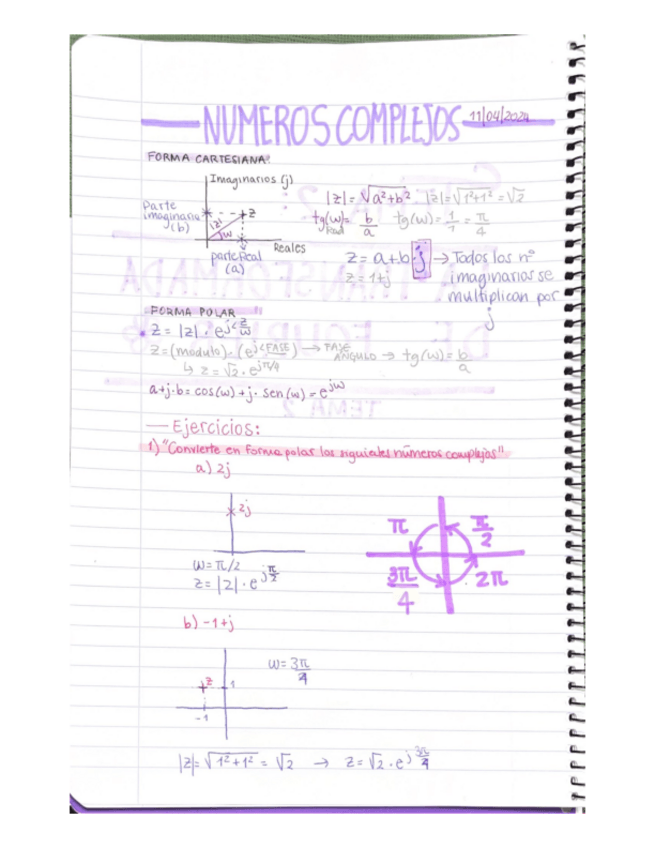 NUMEROS COMPLEJOS 11/04/2024
FORMA CARTESIANA:
Imaginarios (j)
Parte imaginaria (b)
z
|z|
jw
Reales
parte Real (a)
|z| = √a²+b² |z| = √1²+1² = √2
tg(w) = b/a tg(w) = 1/1 = π/4
z = a+b·j → Todos los nº
z = 1+j imaginarios se
multiplican por
j
FORMA POLAR
z = |z| · e^j<z/w
z = (modulo) · (e^j<FASE) → FASE ANGULO → tg(w) = b/a
↳ z = √2 · e^jπ/4
a+j·b = cos(w)+j· sen(w) = e^jw
— Ejercicios:
1) "Convierte en forma polar los siguientes números complejos"
a) 2j
2j
w = π/2
z = |2| · e^jπ/2
π
π/2
3π/4
2π
b) -1+j
z
1
-1
w = 3π/4
|z| = √1²+1² = √2 → z = √2 · e^j3π/4